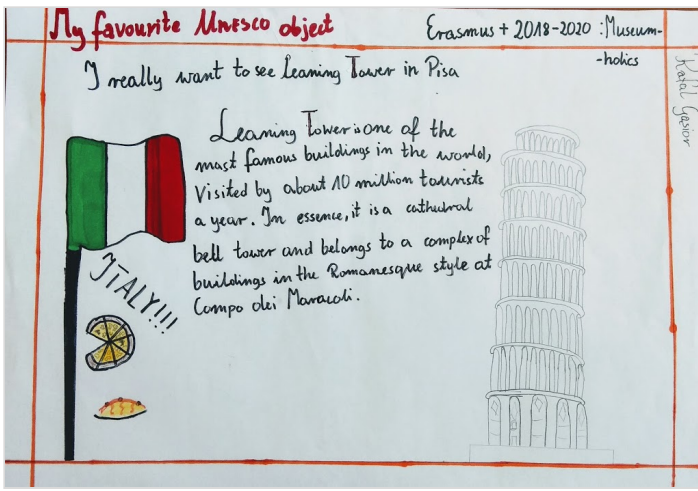 My favourite UNESCO object
Erasmus + 2018-2020 : Museum-
-holics
Rafał Gąsior
I really want to see Leaning Tower in Pisa
Leaning Tower is one of the
most famous buildings in the world,
Visited by about 10 million tourists
a year. In essence, it is a cathedral
bell tower and belongs to a complex of
buildings in the Romanesque style at
Compo dei Maracoli.
ITALY!!!